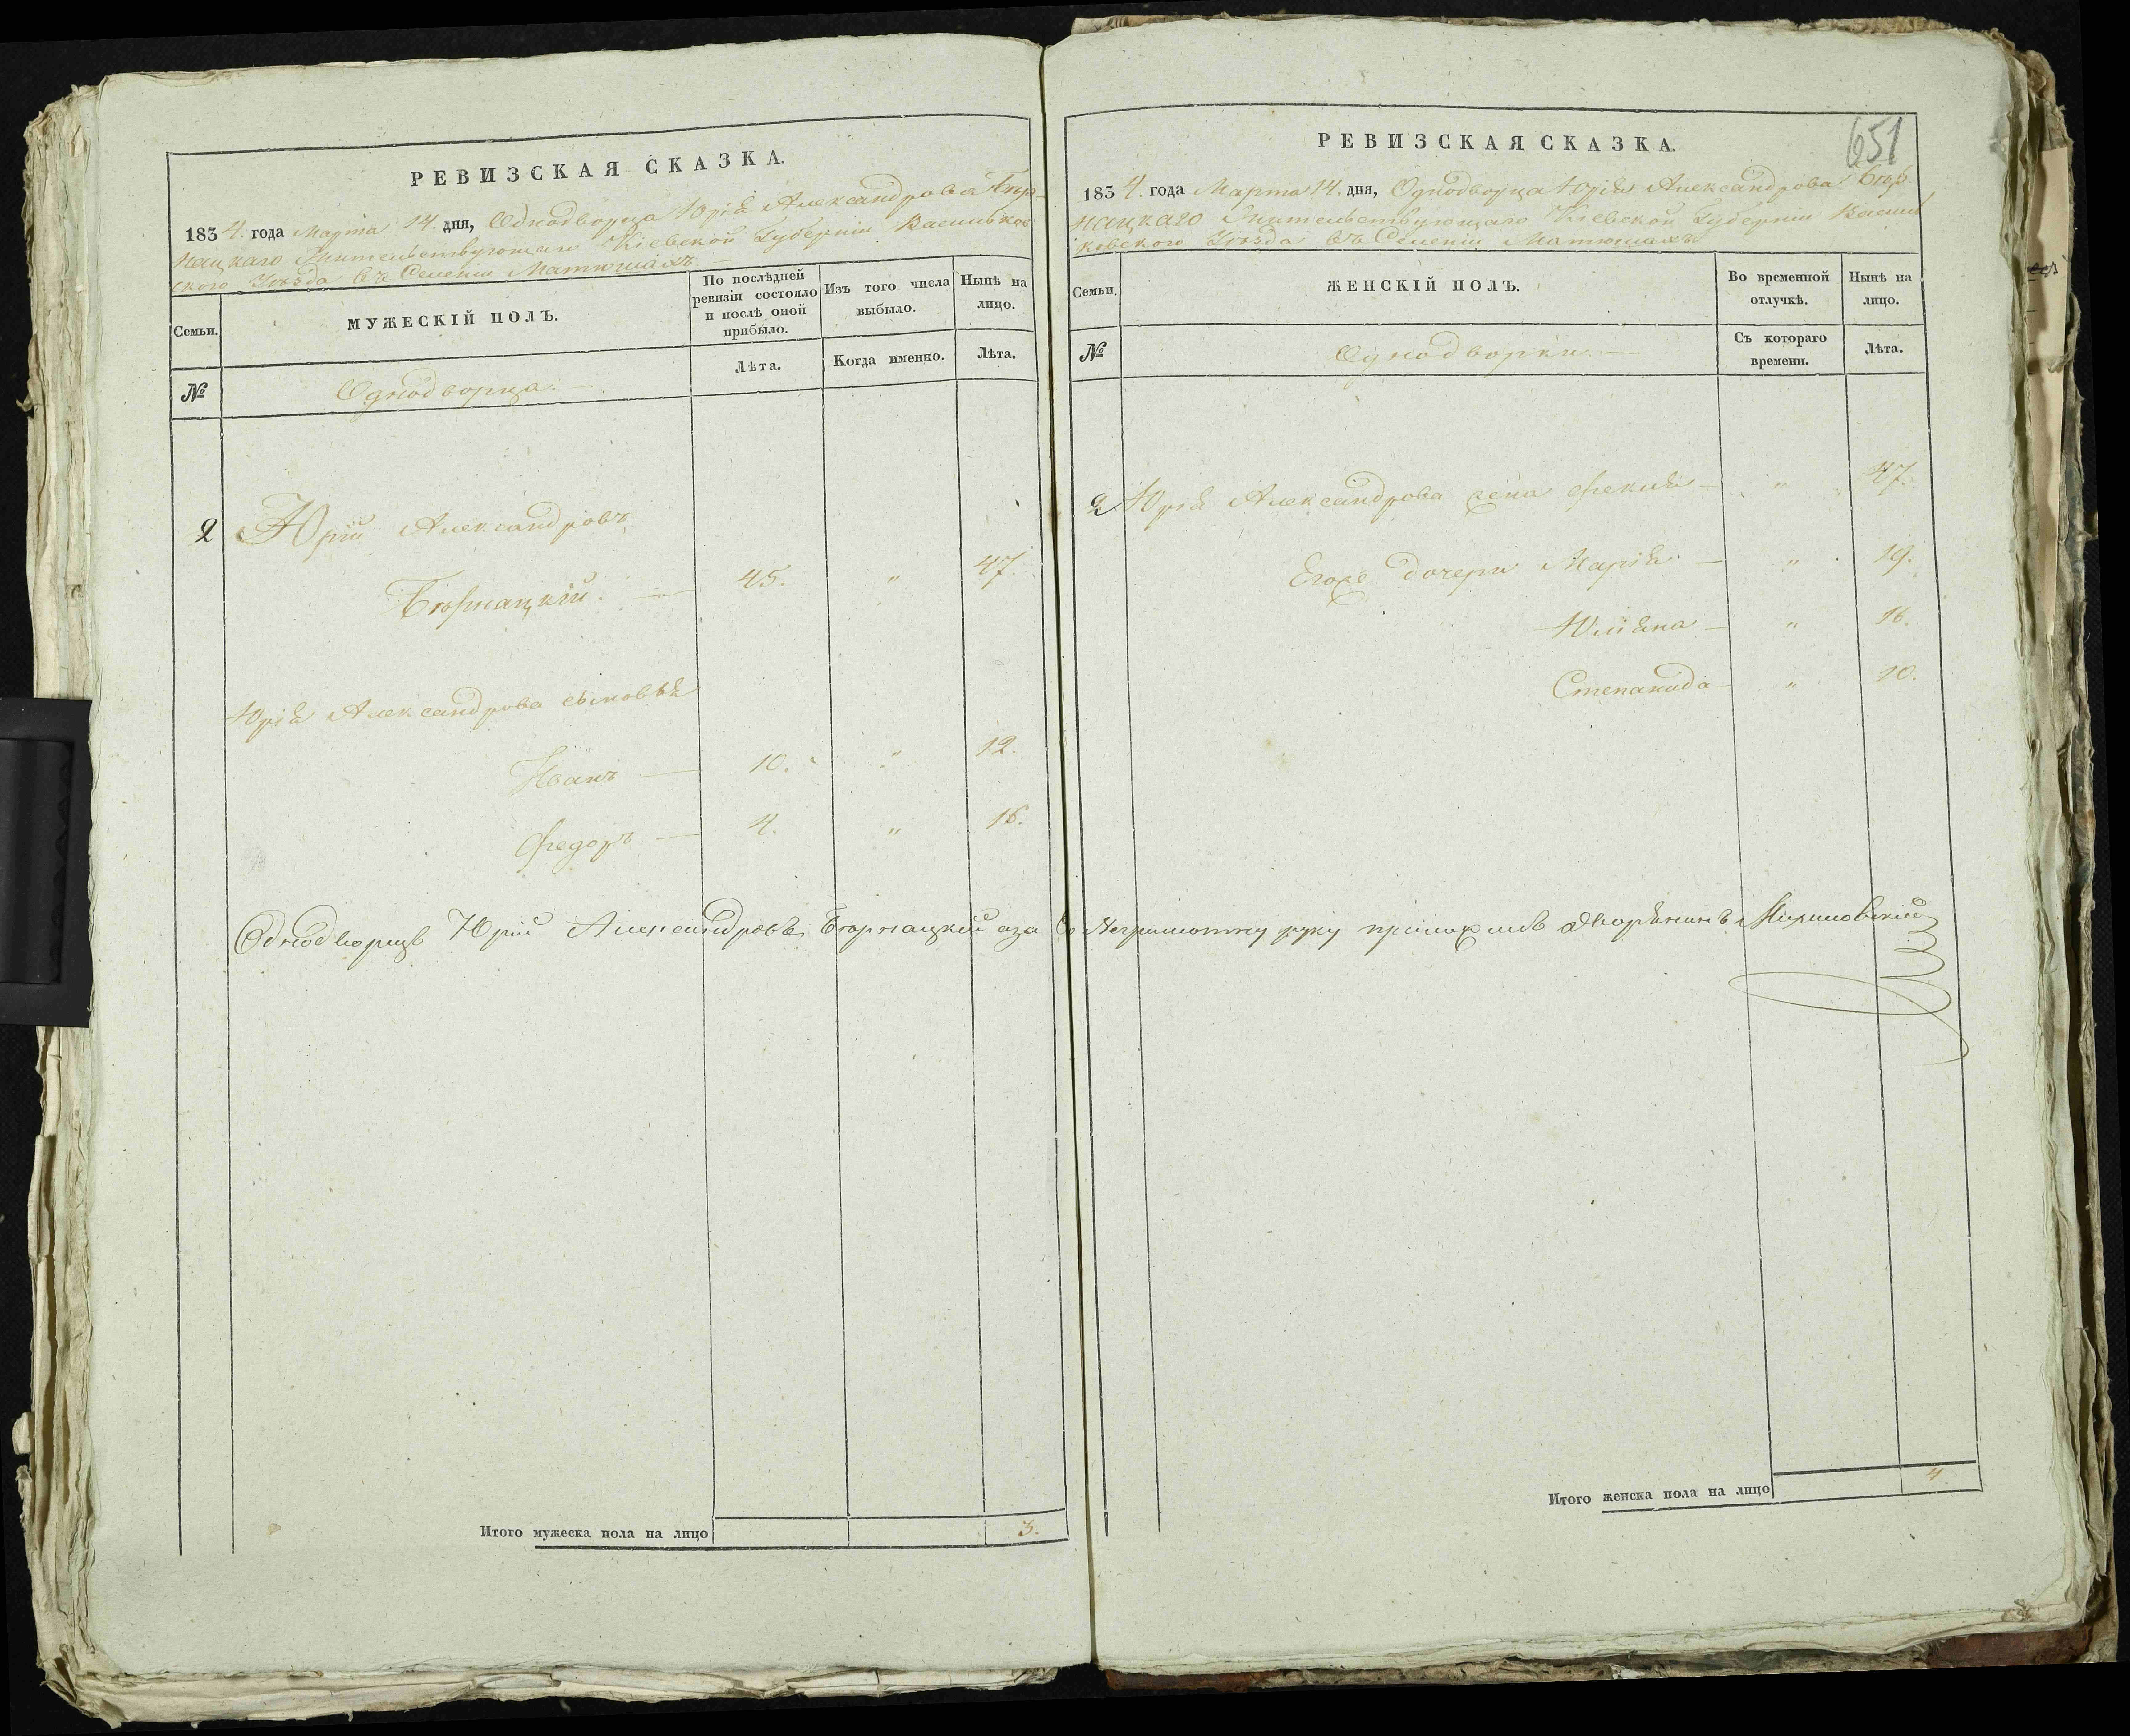 РЕВИЗСКАЯ СКАЗКА.
1834. года Марта 14. дня, Однодворца Юрія Александрова Бѣр-
нацкаго Жительствующаго Кіевской Губерніи Васильков
ского Уѣзда въ Селеніи Матюшахъ
Семьи.
МУЖЕСКІЙ ПОЛЪ.
По послѣдней ревизіи состояло и послѣ оной прибыло.
Изъ того числа выбыло.
Нынѣ на лицо.
№
Однодворца.
Лѣта.
Когда именно.
Лѣта.
2 Юрій Александровъ
Бѣрнацкій. — 45. " 47.
Юрія Александрова сыновья
Иванъ — 10. " 12.
Федоръ — 4. " 16.
Однодворцъ Юрій Александровъ Бѣрнацкій аза Его Неграмотну руку приложилъ Дворянинъ
Итого мужеска пола на лицо 3.
РЕВИЗСКАЯ СКАЗКА.
651
1834. года Марта 14. дня, Однодворца Юрія Александрова Бѣр-
нацкаго Жительствующаго Кіевской Губерніи Василь
ковского Уѣзда въ Селеніи Матюшахъ
Семьи.
ЖЕНСКІЙ ПОЛЪ.
Во временной отлучкѣ.
Нынѣ на лицо.
№
Однодворки. —
Съ котораго времени.
Лѣта.
2 Юрія Александрова жена — " 47.
Егоже дочери Марія — " 19.
Юліяна — " 16.
Степанида — " 10.
Итого женска пола на лицо 4.